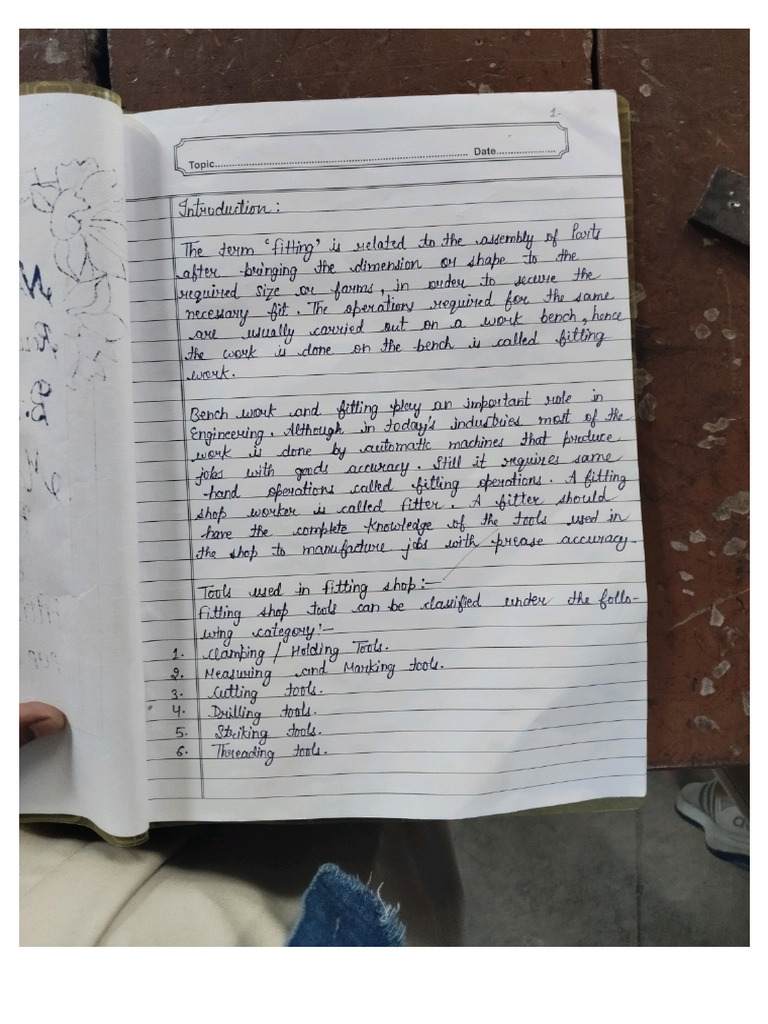 1.
Topic.......................................................... Date....................
Introduction :
The term 'fitting' is related to the assembly of Parts
after bringing the dimension or shape to the
required size or farms, in order to secure the
necessary fit. The operations required for the same
are usually carried out on a work bench, hence
the work is done on the bench is called fitting
work.
Bench work and fitting play an important role in
Engineering. Although in today's industries most of the
work is done by automatic machines that produce
jobs with goods accuracy. Still it requires same
hand operations called fitting operations. A fitting
shop worker is called fitter. A fitter should
have the complete knowledge of the tools used in
the shop to manufacture jobs with prease accuracy.
Tools used in fitting shop:-
Fitting shop tools can be classified under the follo-
wing category:-
1. Clamping / Holding Tools.
2. Measuring and Marking tools.
3. Cutting tools.
4. Drilling tools.
5. Striking tools.
6. Threading tools.